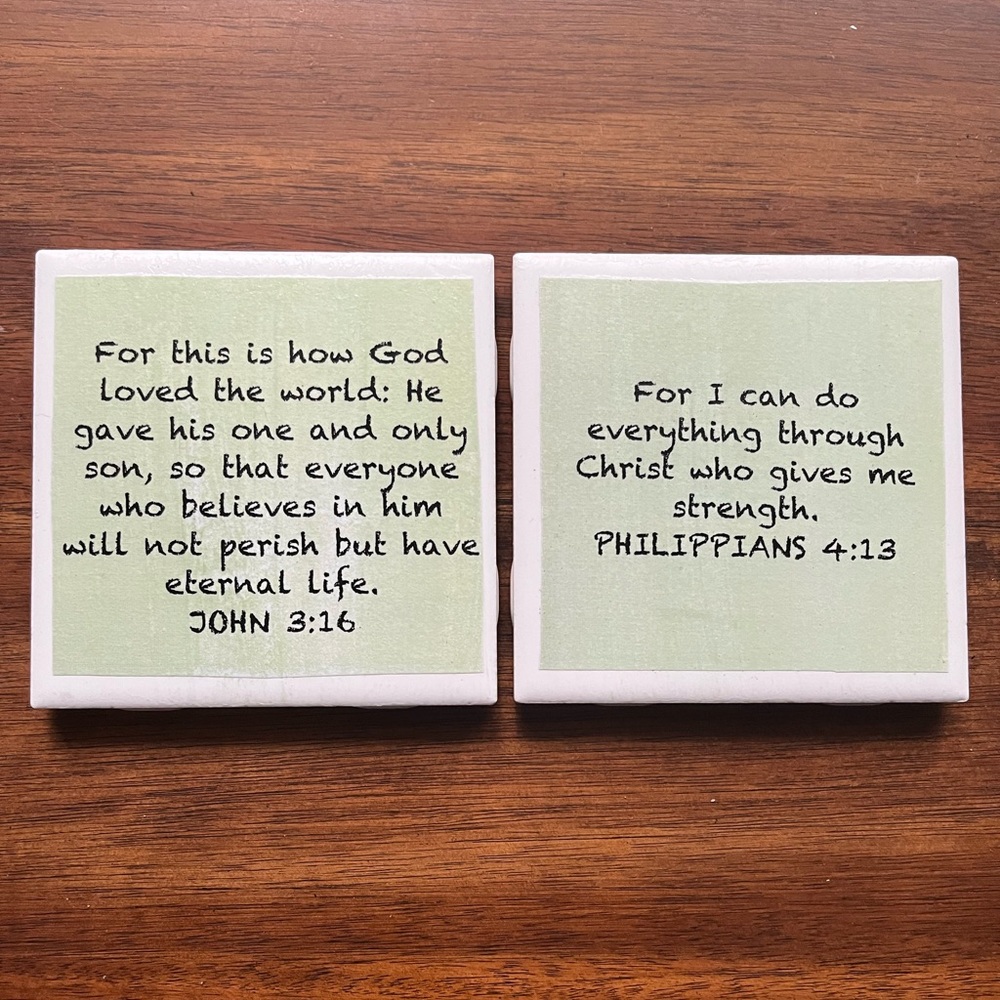 For this is how God
loved the world: He
gave his one and only
son, so that everyone
who believes in him
will not perish but have
eternal life.
JOHN 3:16
For I can do
everything through
Christ who gives me
strength.
PHILIPPIANS 4:13